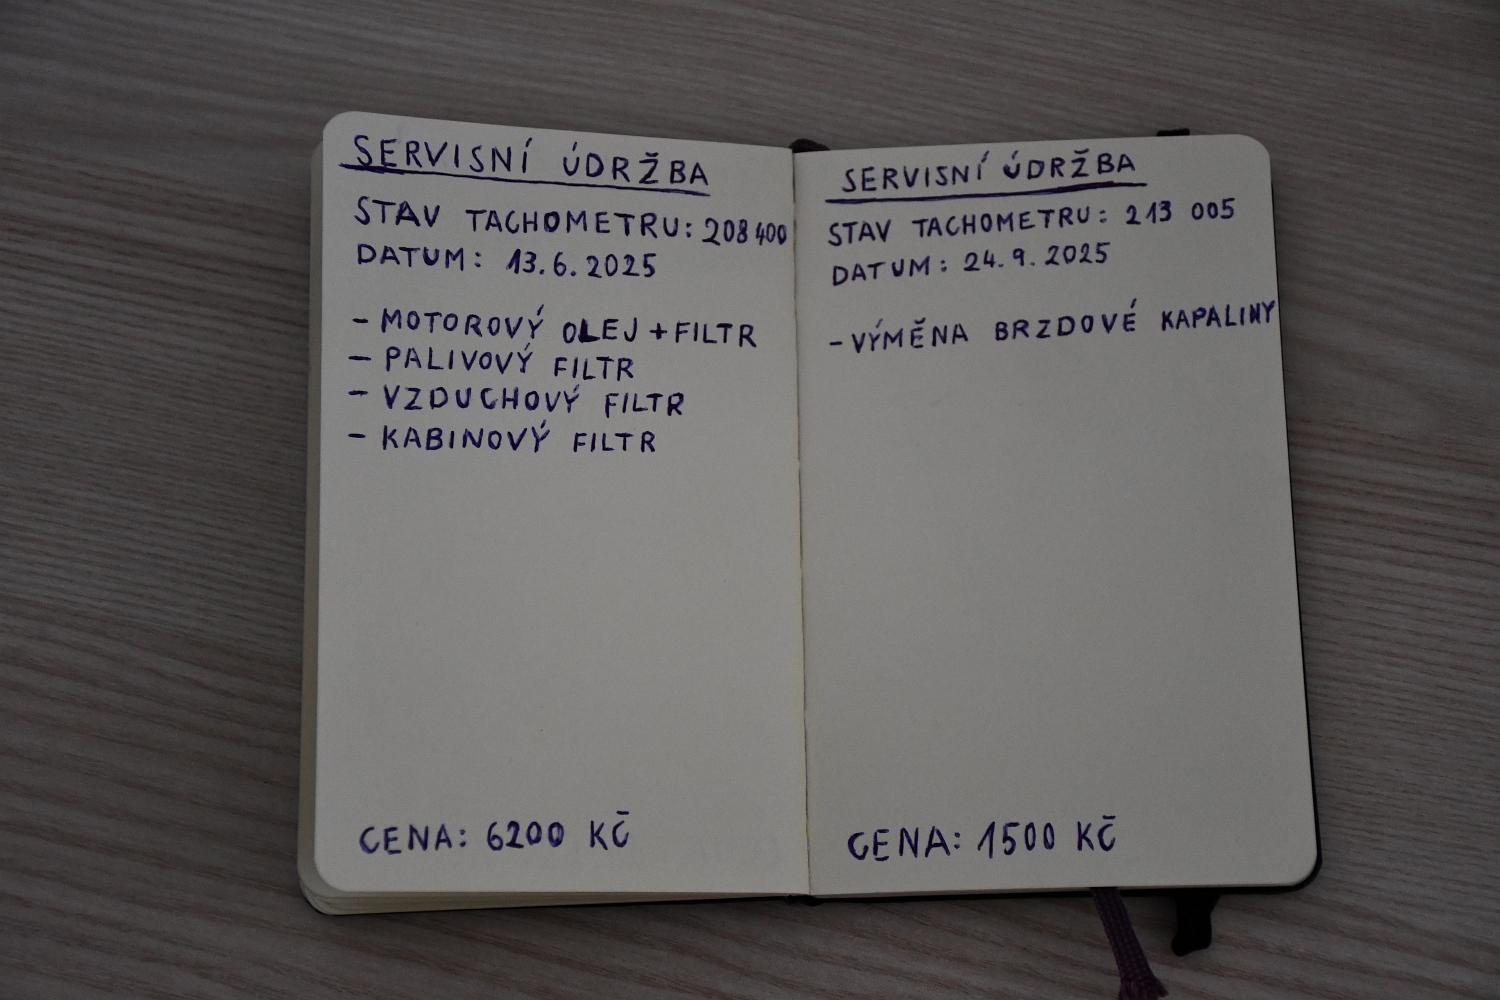 SERVISNÍ ÚDRŽBA
STAV TACHOMETRU: 208 400
DATUM: 13.6.2025
- MOTOROVÝ OLEJ + FILTR
- PALIVOVÝ FILTR
- VZDUCHOVÝ FILTR
- KABINOVÝ FILTR
CENA: 6200 KČ
SERVISNÍ ÚDRŽBA
STAV TACHOMETRU: 213 005
DATUM: 24.9.2025
- VÝMĚNA BRZDOVÉ KAPALINY
CENA: 1500 KČ